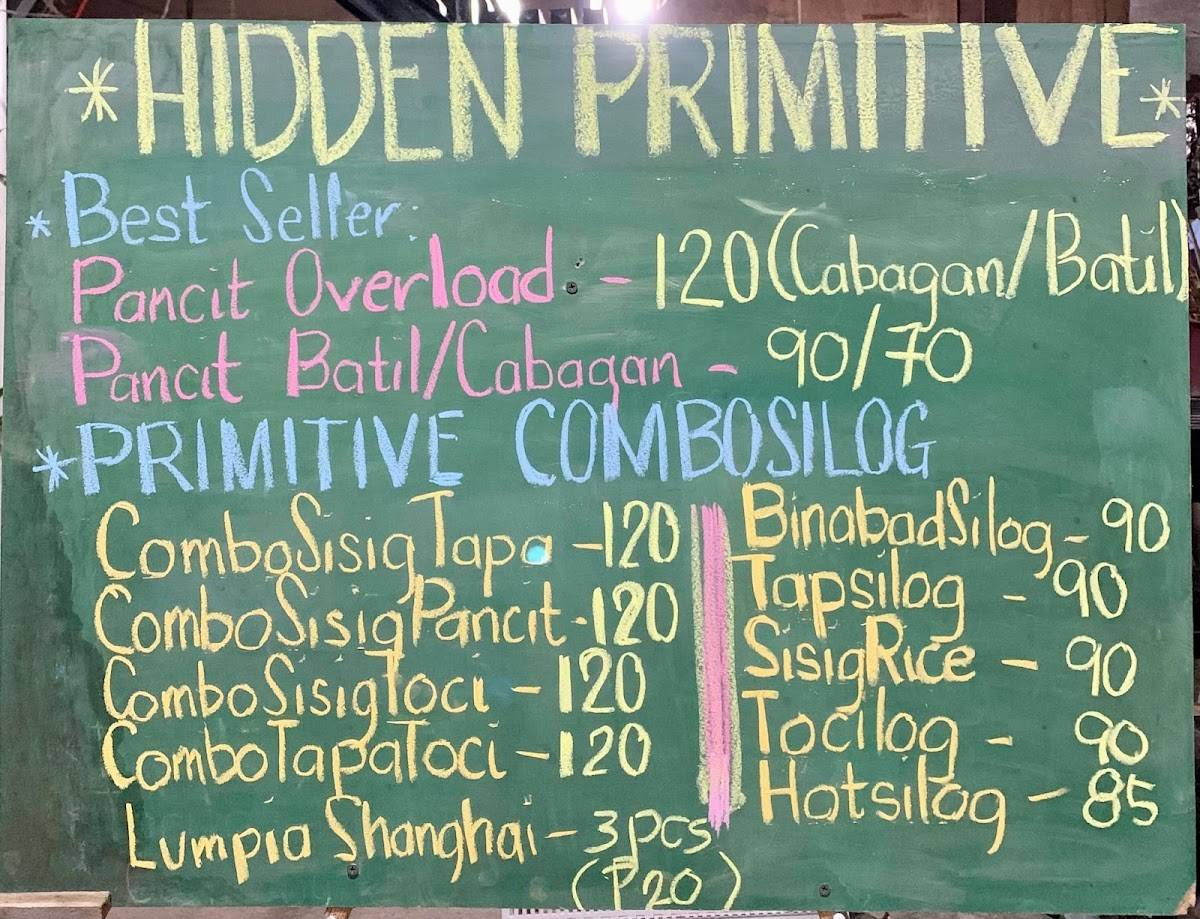 *HIDDEN PRIMITIVE*
*Best Seller:
Pancit Overload - 120(Cabagan/Batil)
Pancit Batil/Cabagan - 90/70
*PRIMITIVE COMBOSILOG
ComboSisigTapa -120
ComboSisigPancit-120
ComboSisigToci -120
ComboTapaToci -120
Lumpia Shanghai - 3pcs
(₱20)
BinabadSilog - 90
Tapsilog - 90
SisigRice - 90
Tocilog - 90
Hotsilog - 85